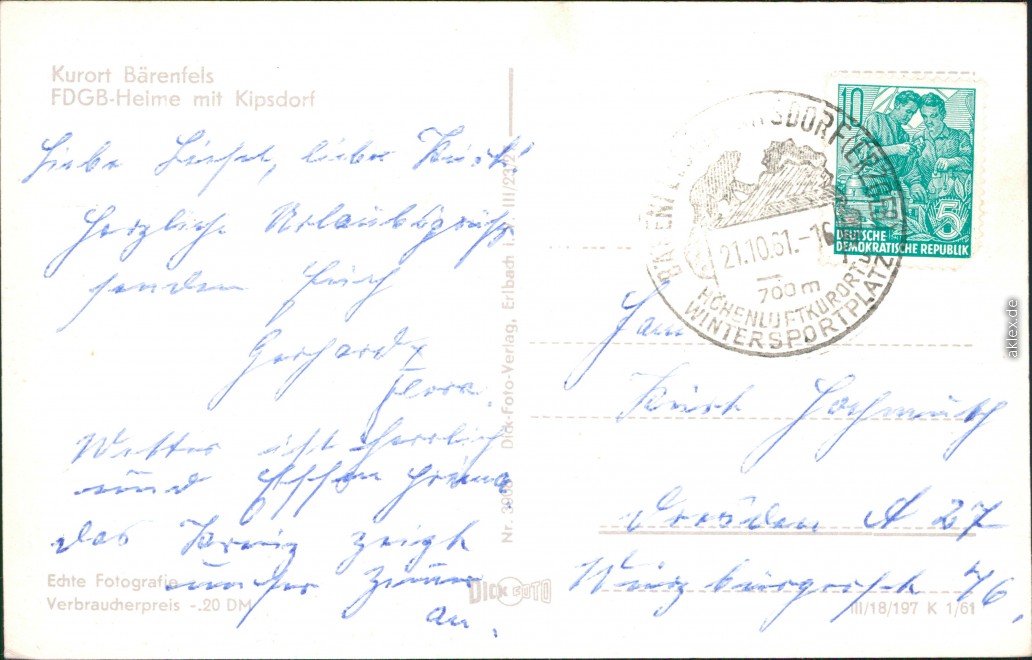 Kurort Bärenfels
FDGB-Heime mit Kipsdorf
Liebe Liesel, lieber Kurt!
Herzliche Urlaubsgrüße
senden Euch
Gerhard
Flora.
Wetter ist herrlich
und Essen prima
das Kreuz zeigt
unser Zimmer
an.
Echte Fotografie
Verbraucherpreis -.20 DM
Nr. Dick-Foto-Verlag, Erlbach i. V. III/23/2
DICK FOTO
10
5
DEUTSCHE
DEMOKRATISCHE REPUBLIK
BÄRENFELS KIPSDORF/ERZGEB
21.10.61.-16
700 m
HÖHENLUFTKURORT U.
WINTERSPORTPLATZ
Fam
Kurt Hochmuth
Dresden A 27
Würzburgerstr 76.
III/18/197 K 1/61
aklex.de